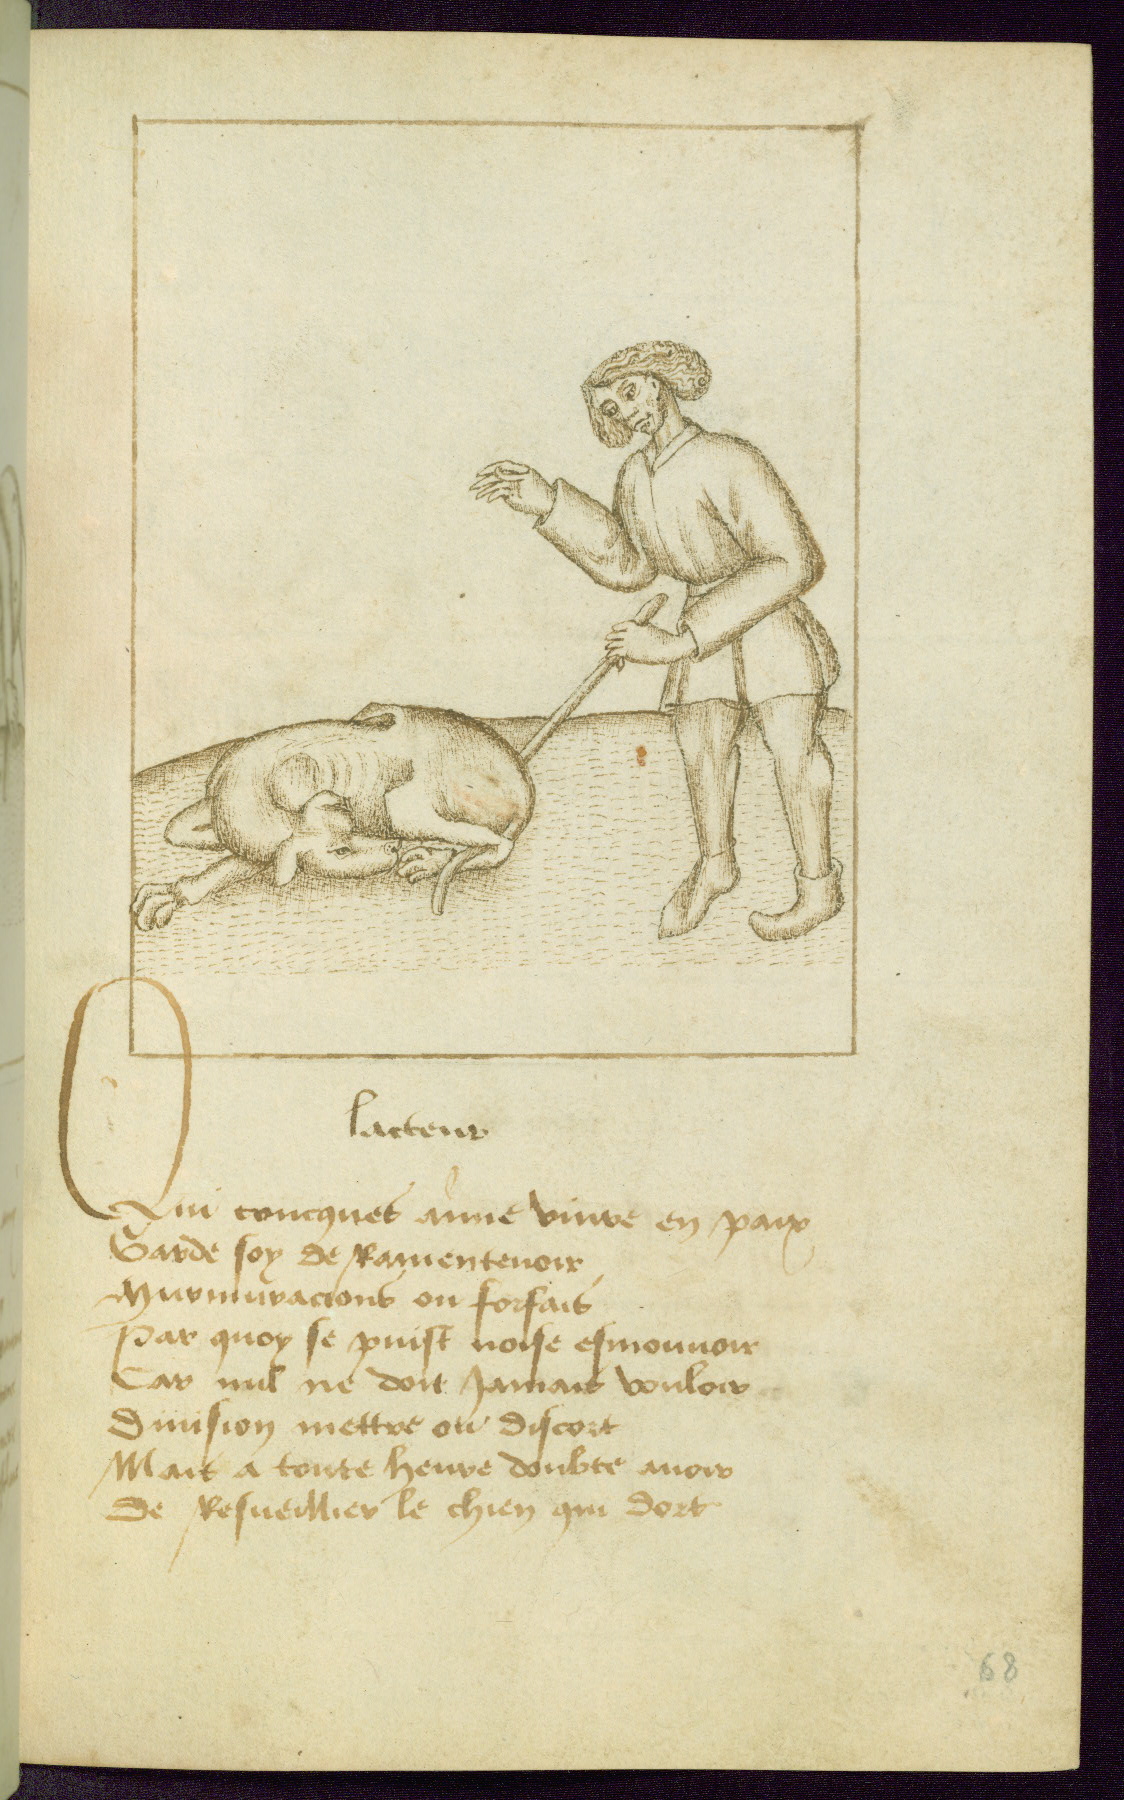 lacteur
Qui concques aime vivre en paix
Garde soy de Ramentevoir
Murmuracions ou forfais
Par quoy se puist noise esmouvoir
Car nul ne doit Jamais vouloir
Division mettre ou discort
Mais a toute heure doubte avoir
De Resveillier le chien qui dort
68